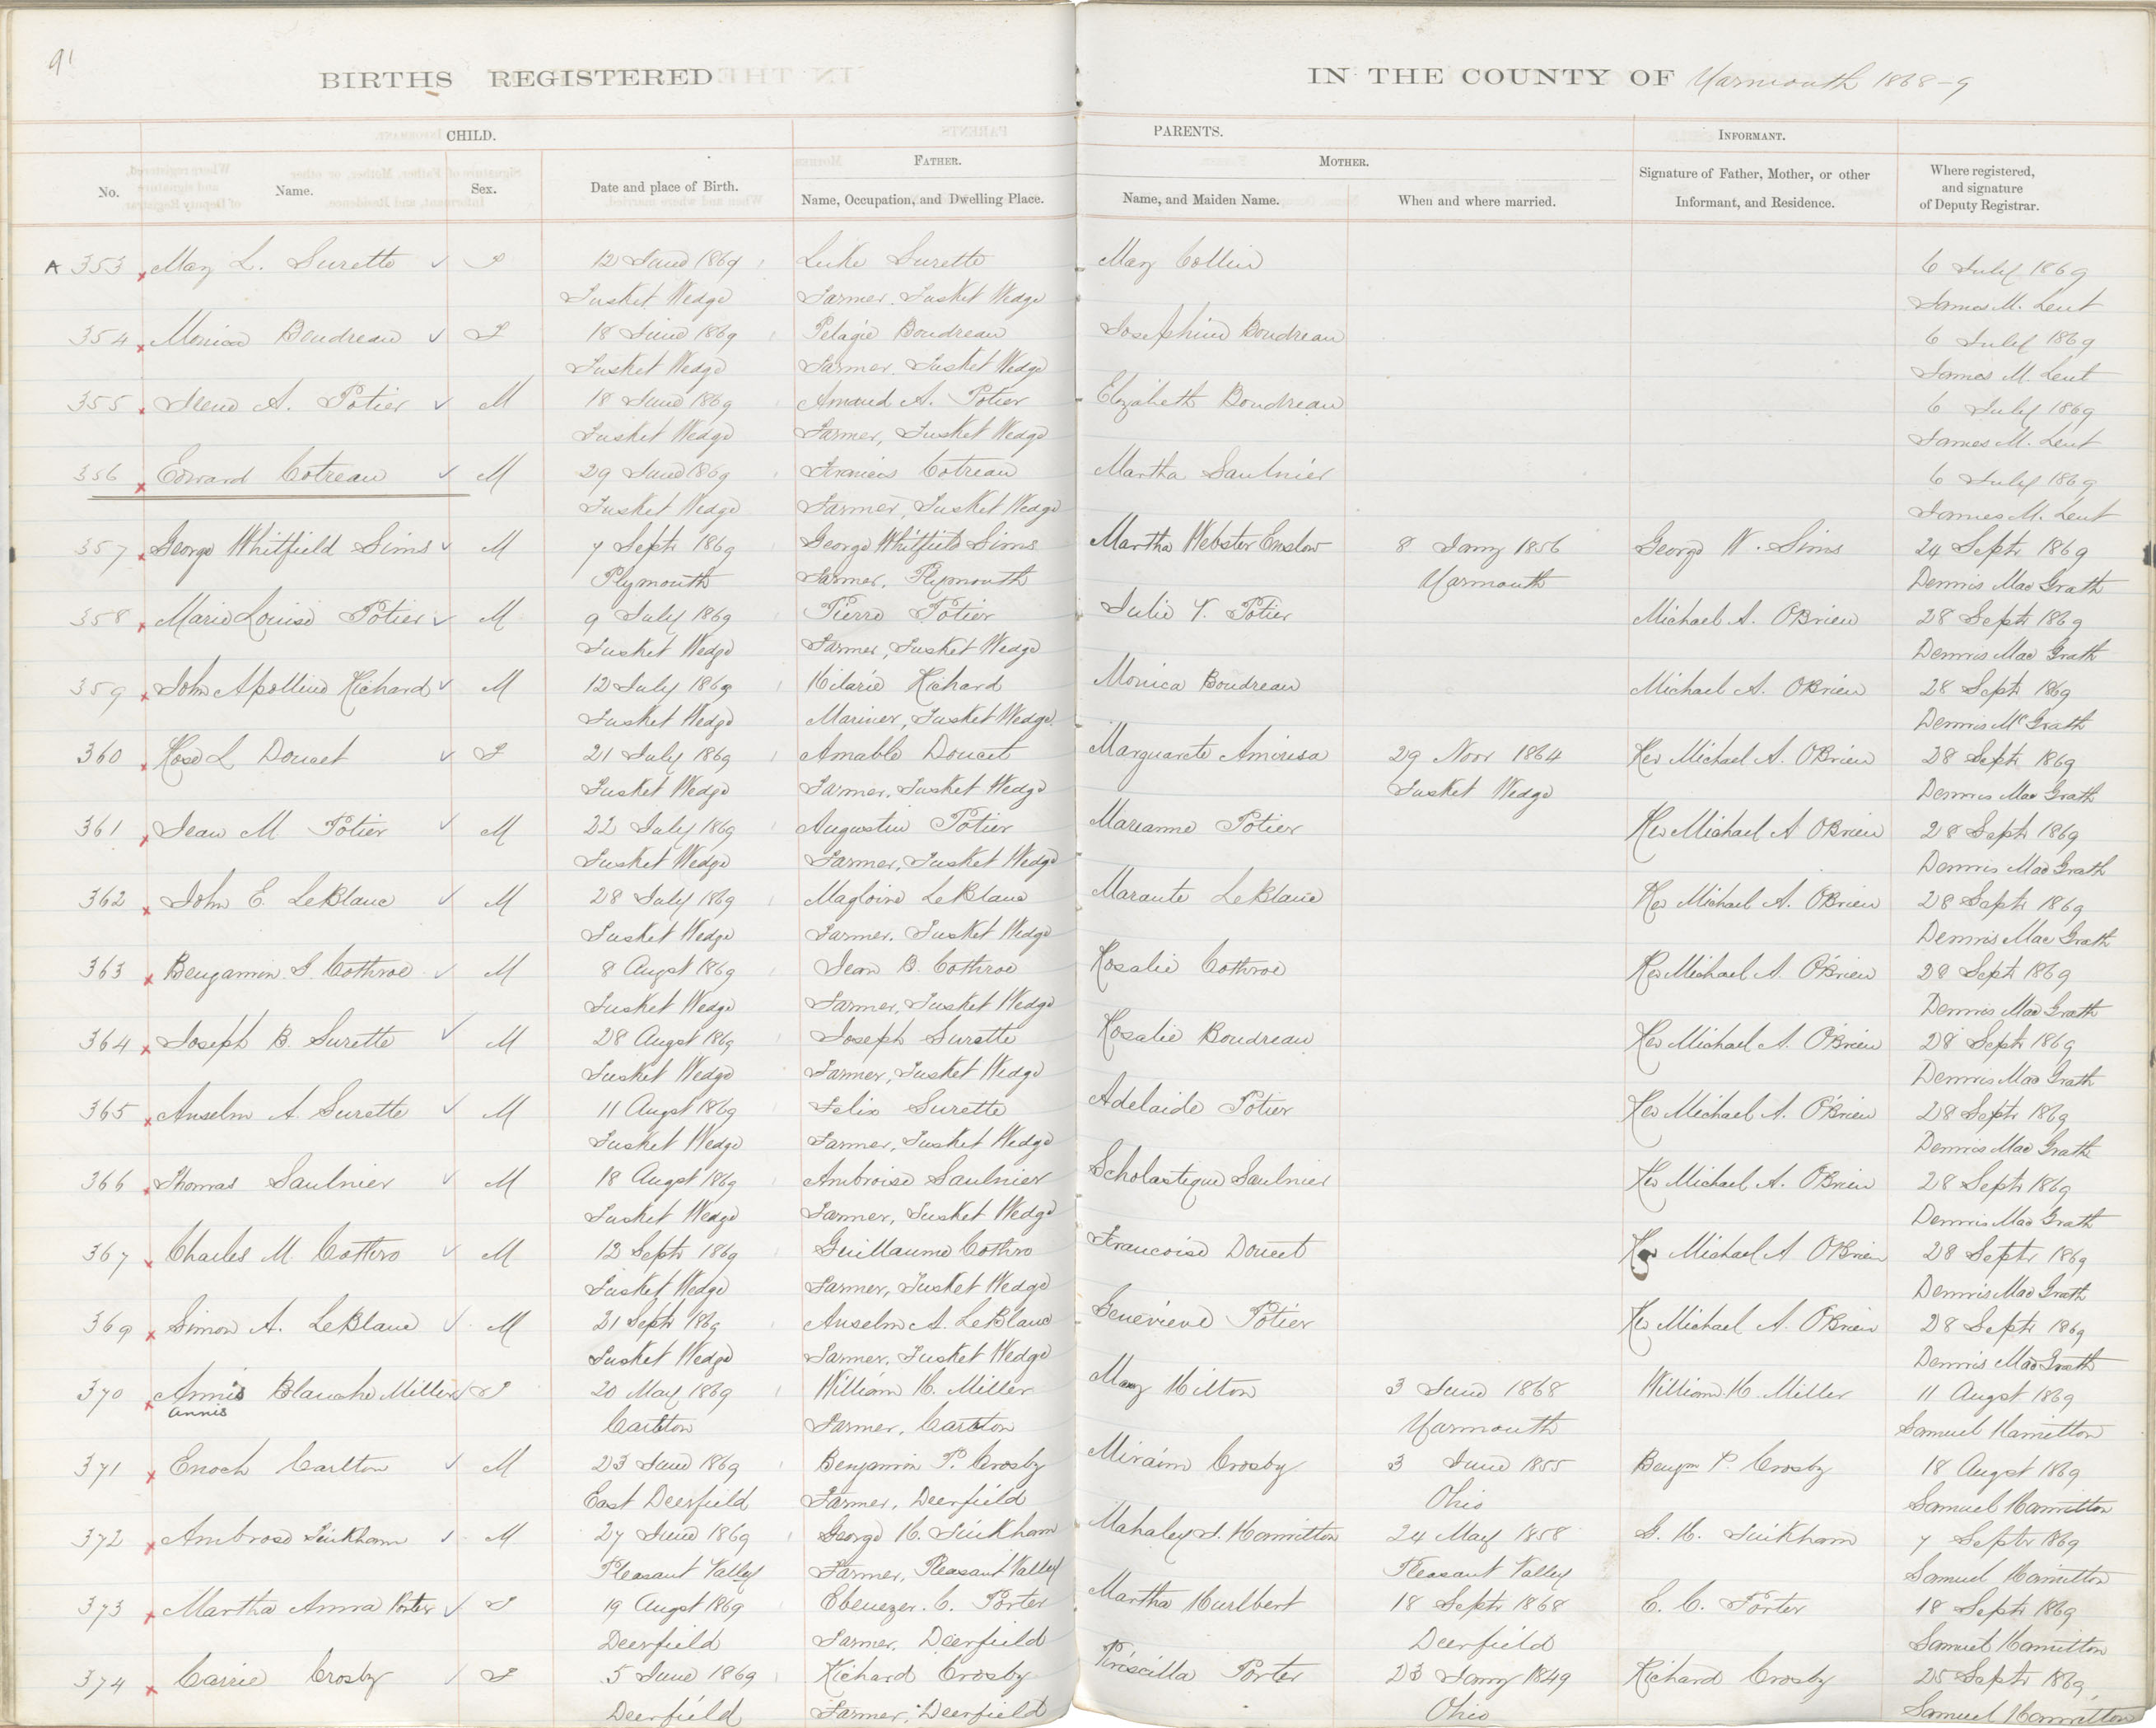 91
BIRTHS REGISTERED
IN THE COUNTY OF Yarmouth 1868-9
CHILD.
PARENTS.
INFORMANT.
FATHER.
MOTHER.
No.
Name.
Sex.
Date and place of Birth.
Name, Occupation, and Dwelling Place.
Name, and Maiden Name.
When and where married.
Signature of Father, Mother, or other
Informant, and Residence.
Where registered,
and signature
of Deputy Registrar.
A 353 x Mary L. Surette ✓ F 12 June 1869 Luke Surette Mary Collin 6 July 1869
Tusket Wedge Farmer. Tusket Wedge James M. Lent
354 x Monica Boudreau ✓ F 18 June 1869 Pelagie Boudreau Josephine Boudreau 6 July 1869
Tusket Wedge Farmer. Tusket Wedge James M. Lent
355 x A. Potier ✓ M 18 June 1869 Amand A. Potier Elizabeth Boudreau 6 July 1869
Tusket Wedge Farmer, Tusket Wedge James M. Lent
356 x Edward Cotreau ✓ M 29 June 1869 Francis Cotreau Martha Saulnier 6 July 1869
Tusket Wedge Farmer, Tusket Wedge James M. Lent
357 x George Whitfield Sims ✓ M 7 Septr 1869 George Whitfield Sims Martha Webster Enslow 8 Jany 1856 George W. Sims 24 Septr 1869
Plymouth Farmer, Plymouth Yarmouth Dennis Mac Grath
358 x Marie Louise Potier ✓ M 9 July 1869 Pierre Potier Julie V. Potier Michael A. OBrien 28 Septr 1869
Tusket Wedge Farmer, Tusket Wedge Dennis Mac Grath
359 x John Apolline Richard ✓ M 12 July 1869 Hilarie Richard Monica Boudreau Michael A. OBrien 28 Septr 1869
Tusket Wedge Mariner, Tusket Wedge. Dennis Mc Grath
360 x Rose L Doucet ✓ F 21 July 1869 Amable Doucet Marguarete Amirisa 29 Novr 1864 Rev Michael A. OBrien 28 Septr 1869
Tusket Wedge Farmer. Tusket Wedge Tusket Wedge Dennis Mac Grath
361 x Jean M Potier ✓ M 22 July 1869 Augustin Potier Marianne Potier Rev Michael A OBrien 28 Septr 1869
Tusket Wedge Farmer, Tusket Wedge Dennis Mac Grath
362 x John E. LeBlanc ✓ M 28 July 1869 Magloire LeBlanc Marante LeBlanc Rev Michael A. OBrien 28 Septr 1869
Tusket Wedge Farmer. Tusket Wedge Dennis Mac Grath
363 x Bengamin G. Cothroe ✓ M 8 Augst 1869 Jean B. Cothroe Rosalie Cothroe Rev Michael A. O'Brien 28 Septr 1869
Tusket Wedge Farmer, Tusket Wedge Dennis Mac Grath
364 x Joseph B. Surette ✓ M 28 Augst 1869 Joseph Surette Rosalie Boudreau Rev Michael A. O'Brien 28 Septr 1869
Tusket Wedge Farmer, Tusket Wedge Dennis Mac Grath
365 x Anselm A. Surette ✓ M 11 Augst 1869 Felix Surette Adelaide Potier Rev Michael A. O'Brien 28 Septr 1869
Tusket Wedge Farmer, Tusket Wedge Dennis Mac Grath
366 x Thomas Saulnier ✓ M 18 Augst 1869 Ambroise Saulnier Scholastique Saulnier Rev Michael A. O'Brien 28 Septr 1869
Tusket Wedge Farmer, Tusket Wedge Dennis Mac Grath
367 x Charles M. Cothro ✓ M 12 Septr 1869 Guillaume Cothro Francoise Doucet Rev Michael A OBrien 28 Septr 1869
Tusket Wedge Farmer, Tusket Wedge Dennis Mac Grath
369 x Simon A. LeBlanc ✓ M 21 Septr 1869 Anselm A. LeBlanc Genevieve Potier Rev Michael A. O'Brien 28 Septr 1869
Tusket Wedge Farmer, Tusket Wedge Dennis Mac Grath
370 x Annis Blanche Miller ✓ F 20 May 1869 William H. Miller Mary Hilton 3 June 1868 William H. Miller 11 Augst 1869
Annis Carleton Farmer, Carleton Yarmouth Samuel Hamilton
371 x Enoch Carlton ✓ M 23 June 1869 Benjamin P. Crosby Miraim Crosby 3 June 1855 Benjm P. Crosby 18 Augst 1869
East Deerfield Farmer, Deerfield Ohio Samuel Hamilton
372 x Ambrose Tinkham ✓ M 27 June 1869 George H. Tinkham Mahaley J. Hamilton 24 May 1858 G. H. Tinkham 7 Septr 1869
Pleasant Valley Farmer, Pleasant Valley Pleasant Valley Samuel Hamilton
373 x Martha Anna Porter ✓ F 19 Augst 1869 Ebenezer. C. Porter Martha Hurlbert 18 Septr 1868 E. C. Porter 18 Septr 1869
Deerfield Farmer. Deerfield Deerfield Samuel Hamilton
374 x Carrie Crosby ✓ F 5 June 1869 Richard Crosby Priscilla Porter 23 Jany 1849 Richard Crosby 25 Septr 1869
Deerfield Farmer, Deerfield Ohio Samuel Hamilton